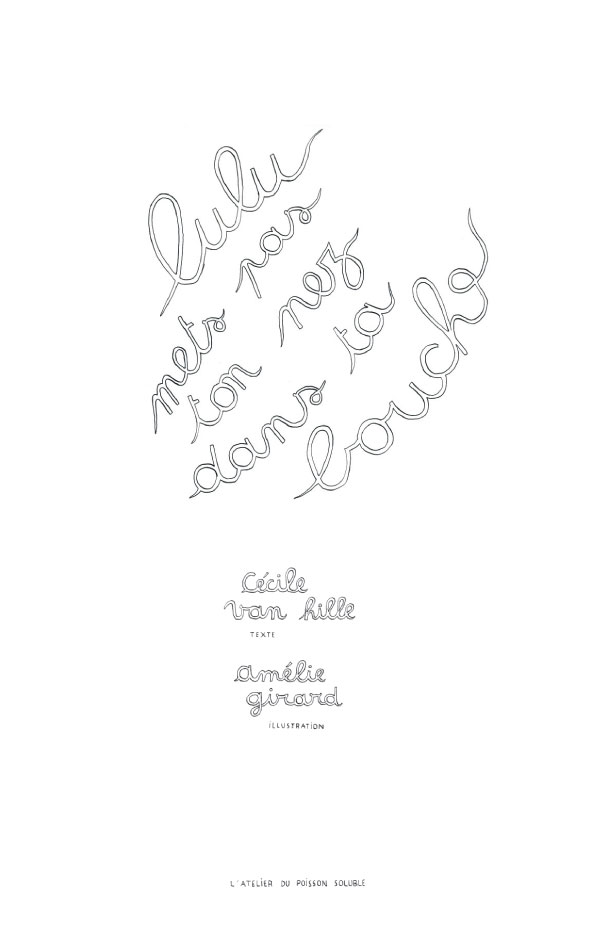 lulu
mets pas
ton nez
dans ta
bouche
Cécile
van hille
TEXTE
amélie
girard
iLLUSTRATiON
L'ATELiER DU POiSSON SOLUBLE